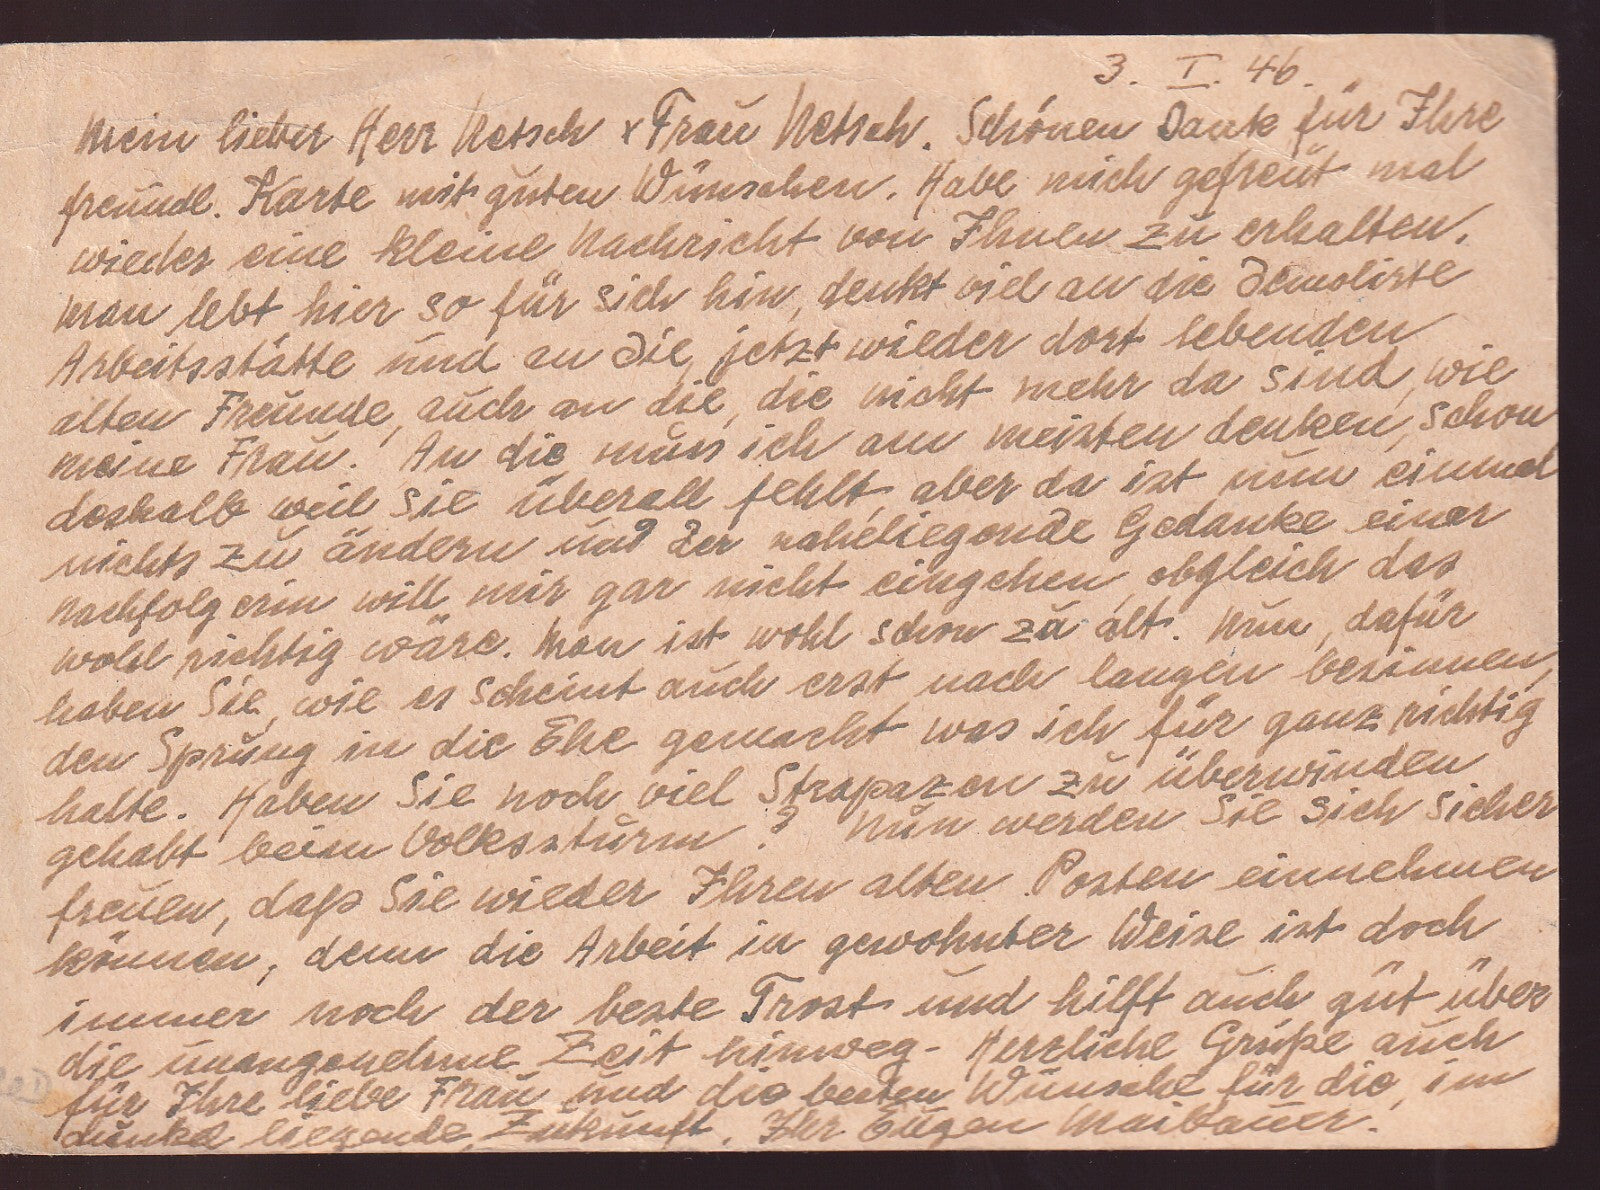 3. I. 46.
Mein lieber Herr Netsch & Frau Netsch. Schönen Dank für Ihre
freundl. Karte mit guten Wünschen. Habe mich gefreut mal
wieder eine kleine Nachricht von Ihnen zu erhalten.
Man lebt hier so für sich hin, denkt viel an die demolirte
Arbeitsstätte und an die, jetzt wieder dort lebenden
alten Freunde, auch an die, die nicht mehr da sind, wie
meine Frau. An die muss ich am meisten denken, schon
deshalb weil Sie überall fehlt, aber da ist nun einmal
nichts zu ändern und der naheliegende Gedanke einer
Nachfolgerin will mir gar nicht eingehen, obgleich das
wohl richtig wäre. Man ist wohl schon zu alt. Nun, dafür
haben Sie, wie es scheint auch erst nach langen besinnen,
den Sprung in die Ehe gemacht was ich für ganz richtig
halte. Haben Sie noch viel Strapazen zu überwinden
gehabt beim Volkssturm? Nun werden Sie sich sicher
freuen, daß Sie wieder Ihren alten Posten einnehmen
können, denn die Arbeit in gewohnter Weise ist doch
immer noch der beste Trost und hilft auch gut über
die unangenehme Zeit hinweg- Herzliche Grüße auch
für Ihre liebe Frau und die besten Wünsche für die, im
dunkel liegende, Zukunft. Ihr Eugen Maibauer.